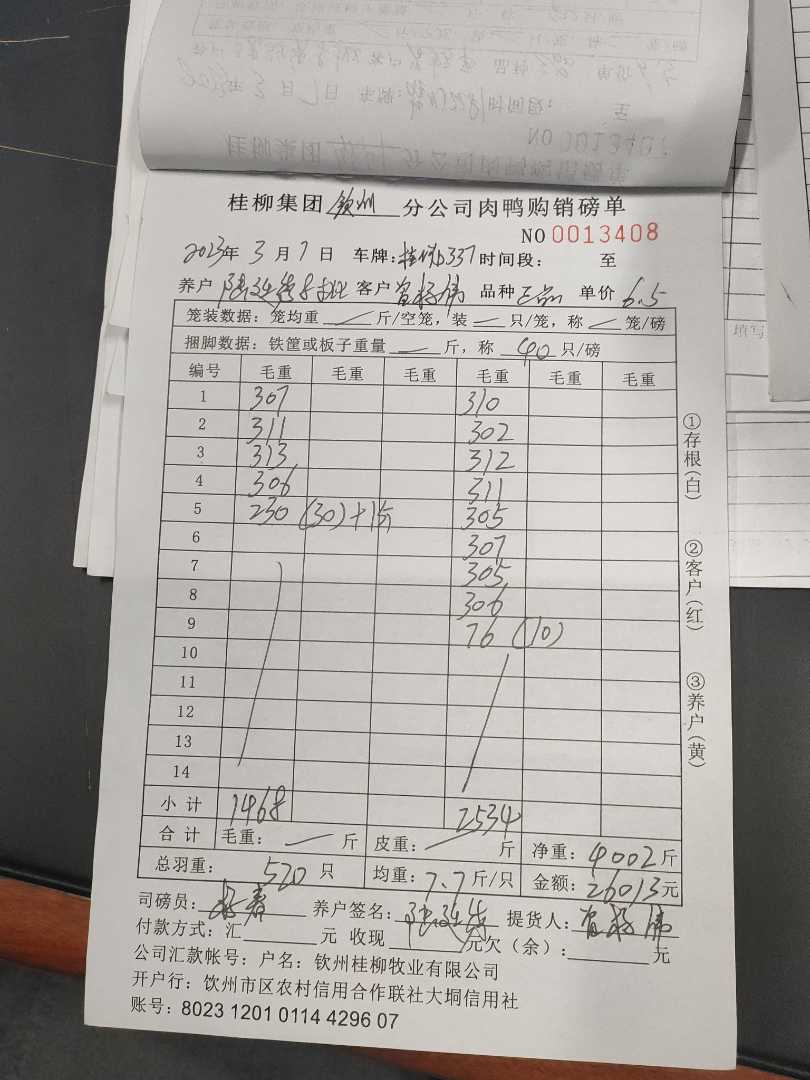 桂柳集团 钦州 分公司肉鸭购销磅单
NO 0013408
2023年 3 月 7 日 车牌: 337 时间段: 至
养户 客户 品种 正品 单价 6.5
笼装数据: 笼均重 斤/空笼, 装 只/笼, 称 笼/磅
捆脚数据: 铁筐或板子重量 斤, 称 40 只/磅
编号 毛重 毛重 毛重 毛重 毛重 毛重
1 307 310
2 311 302
3 313 312
4 306 311
5 230 (30)+1 305
6 307
7 305
8 306
9 76 (10)
10
11
12
13
14
小计 1468 2534
合计 毛重: 斤 皮重: 斤 净重: 4002斤
总羽重: 520 只 均重: 7.7斤/只 金额: 26013元
司磅员: 养户签名: 提货人:
付款方式: 汇 元 收现 元 欠(余): 元
公司汇款帐号: 户名: 钦州桂柳牧业有限公司
开户行: 饮州市区农村信用合作联社大垌信用社
账号: 8023 1201 0114 4296 07
①存根(白)
②客户(红)
③养户(黄)
填写